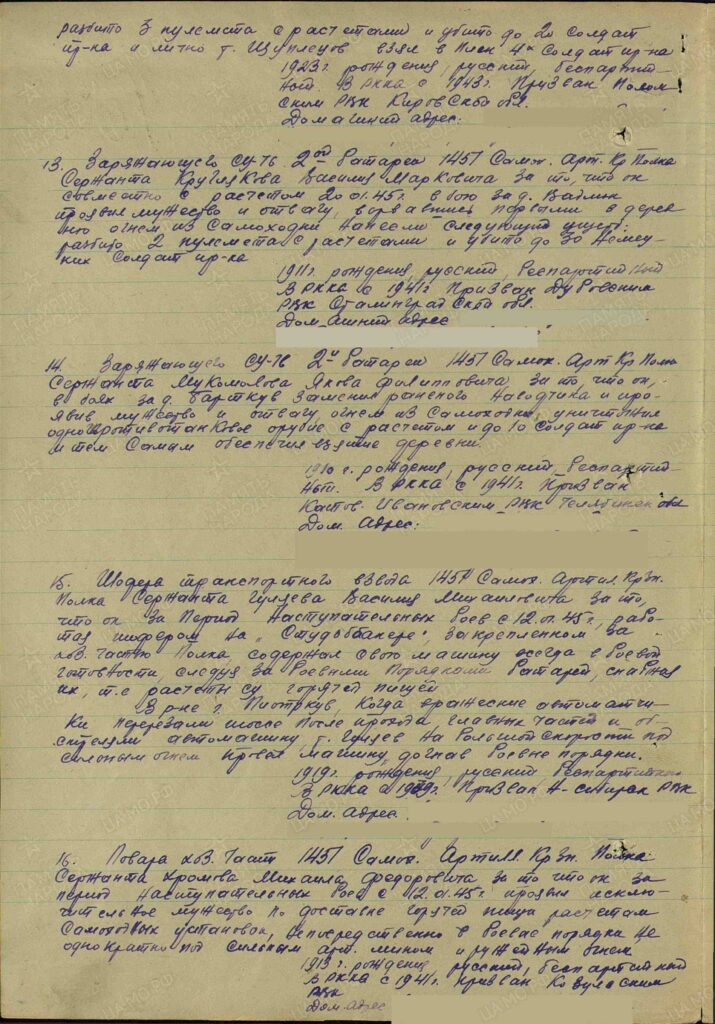 разбито 3 пулемета с расчетами и убито до 20 солдат
пр-ка и лично т. Щуплецов взял в плен 4х солдат пр-ка
1923г. рождения, русский, беспартий-
ный В РККА с 1943г. Призван Полом-
ским РВК Кировской обл.
Домашний адрес:
13. Заряжающего СУ-76 2ой батареи 1451 Самох. Арт. Кр Полка
Сержанта Круглякова Василия Марковича За то, что он
совместно с расчетом 20.01.45г. в бою за д.
проявил мужество и отвагу, ворвавшись первыми в дерев-
ню огнем из самоходки нанесли следующий ущерб:
разбито 2 пулемета с расчетами и убито до 30 немец-
ких солдат пр-ка
1911г. рождения, русский, беспартийный
В РККА с 1941г. Призван Дубовским
РВК Сталинградской обл.
Домашний адрес
14. Заряжающего СУ-76 2й батареи 1451 Самох. Арт Кр Полка
Сержанта Мукомолова Якова Филипповича, за то, что он,
в боях за д. заменив раненого наводчика и про-
явив мужество и отвагу, огнем из самоходки, уничтожил
одно противотанковое орудие с расчетом и до 10 солдат пр-ка
и тем самым обеспечил взятие деревни.
1910 г. рождения, русский, беспартий-
ный. В РККА с 1941г. Призван
Катав. Ивановским РВК Челябинск обл
Дом. Адрес:
15. Шофера транспортного взвода 1451 Самох. Артил. Крзн.
Полка Сержанта Гуляева Василия Михайловича за то,
что он за период наступательных боев с 12.01.45г., рабо-
тая шофером на „Студоббекере", закрепленном за
хоз. частью полка, содержал свою машину всегда в боевой
готовности, следуя за боевыми порядками батарей, снабжая
их, т.е расчеты су горячей пищей
В р-не г. Пиотркув, когда вражеские автоматчи-
ки перерезали шоссе после прохода главных частей и об-
стреляли автомашину, т. Гуляев на большой скорости под
сильным огнем провел машину, догнав боевые порядки.
1919г. рождения, русский беспартийный
В РККА с 1939г. Призван Н-сибирск РВК
Дом. адрес
16. Повара хоз. части 1451 Самох. Артилл. Крзн. Полка
Сержанта Хромова Михаила Федоровича за то что он за
период наступательных боев с 12.01.45г. проявил исклю-
чительное мужество по доставке горячей пищи расчетам
самоходных установок, непосредственно в боевые порядки не
однократно под сильным арт. мином и ружейным огнем
1913 г. рождения, русский, беспартийный
В РККА с 1941г. призван
РВК
Дом. адрес